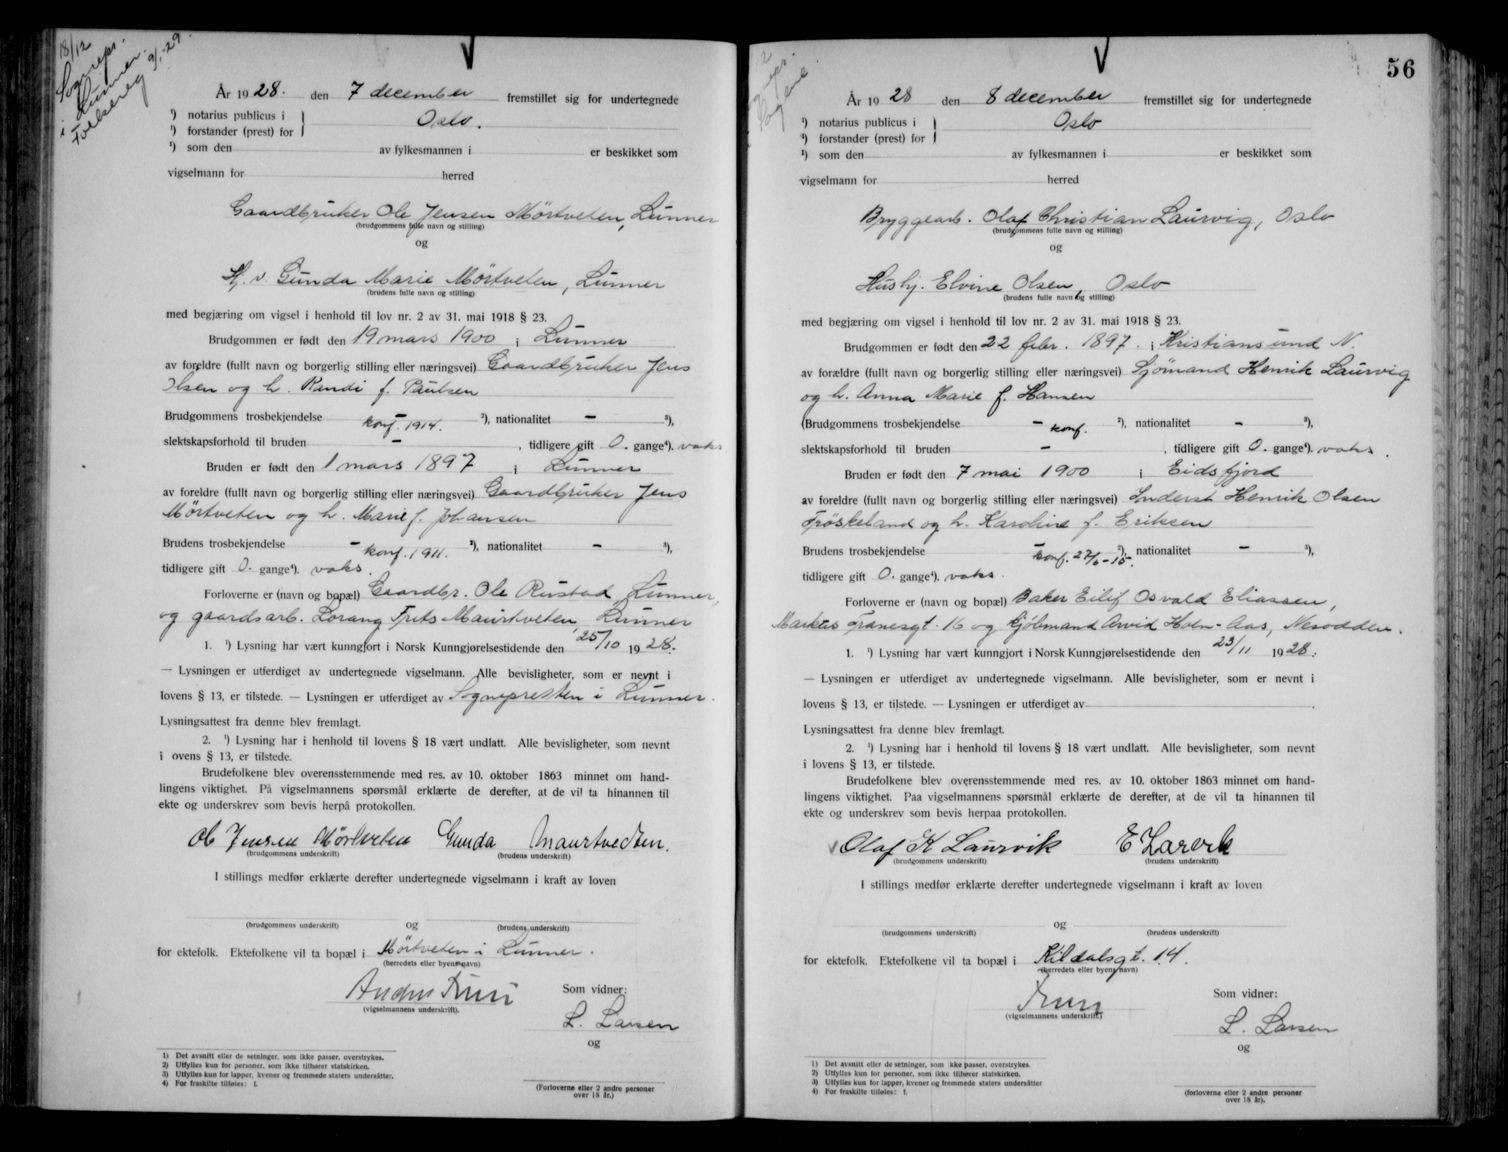 18/12
Sogneps.
i Lunner.
9/1-29.
År 1928. den 7 december fremstillet sig for undertegnede
¹) notarius publicus i
Oslo.
¹) forstander (prest) for
¹) som den av fylkesmannen i er beskikket som
vigselmann for herred
Gaardbruker Ole Jensen Mörtveten, Lunner
(brudgommens fulle navn og stilling)
og
Hj. v. Gunda Marie Mörtveten, Lunner
(brudens fulle navn og stilling)
med begjæring om vigsel i henhold til lov nr. 2 av 31. mai 1918 § 23.
Brudgommen er født den 19 mars 1900 i Lunner
av foreldre (fullt navn og borgerlig stilling eller næringsvei) Gaardbruker Jens
Olsen og h. Randi f. Paulsen
Brudgommens trosbekjendelse - konf. 1914. ²), nationalitet - ³),
slektskapsforhold til bruden - , tidligere gift 0. gange⁴). vaks
Bruden er født den 1 mars 1897 i Lunner
av foreldre (fullt navn og borgerlig stilling eller næringsvei) Gaardbruker Jens
Mörtveten og h. Marie f. Johansen
Brudens trosbekjendelse - konf. 1911. ²), nationalitet - ³),
tidligere gift 0. gange⁴). vaks.
Forloverne er (navn og bopæl) Gaardbr. Ole Rustad, Lunner,
og gaardsarb. Lorang Frits Maurtveten, Lunner
1. ¹) Lysning har vært kunngjort i Norsk Kunngjørelsestidende den 25/10 1928.
— Lysningen er utferdiget av undertegnede vigselmann. Alle bevisligheter, som er nevnt i
lovens § 13, er tilstede. — Lysningen er utferdiget av Sognepresten i Lunner.
Lysningsattest fra denne blev fremlagt.
2. ¹) Lysning har i henhold til lovens § 18 vært undlatt. Alle bevisligheter, som nevnt
i ovens § 13, er tilstede.
Brudefolkene blev overensstemmende med res. av 10. oktober 1863 minnet om hand-
lingens viktighet. På vigselmannens spørsmål erklærte de derefter, at de vil ta hinannen til
ekte og underskrev som bevis herpå protokollen.
Ole Jensen Mörtveten Gunda Maurtvedten.
(brudgommens underskrift) (brudens underskrift)
I stillings medfør erklærte derefter undertegnede vigselmann i kraft av loven
og
(brudgommens underskrift) (brudens underskrift)
for ektefolk. Ektefolkene vil ta bopæl i Mörtveten i Lunner.
(herredets eller byens navn)
(vigselmannens underskrift).
Som vidner:
L. Larsen
og
1) Det avsnitt eller de setninger, som ikke passer, overstrykes.
2) Utfylles kun for personer, som ikke tilhører statskirken.
3) Utfylles kun for lapper, kvener og fremmede staters undersåtter.
4) For fraskilte tilføies: f.
(Forloverne eller 2 andre personer
over 18 år.)
56
År 1928 den 8 december fremstillet sig for undertegnede
¹) notarius publicus i
Oslo
¹) forstander (prest) for
¹) som den av fylkesmannen i er beskikket som
vigselmann for herred
Bryggearb. Olaf Christian Laurvig, Oslo
(brudgommens fulle navn og stilling)
og
Husbj. Elvine Olsen, Oslo
(brudens fulle navn og stilling)
med begjæring om vigsel i henhold til lov nr. 2 av 31. mai 1918 § 23.
Brudgommen er født den 22 febr. 1897. i Kristiansund N.
av forældre (fullt navn og borgerlig stilling eller næringsvei) Sjømand Henrik Laurvig
og h. Anna Marie f. Hansen
(Brudgommens trosbekjendelse - konf. ²), nationalitet - ³),
slektskapsforhold til bruden - , tidligere gift 0. gange⁴). vaks.
Bruden er født den 7 mai 1900 i Eidsfjord
av foreldre (fullt navn og borgerlig stilling eller næringsvei) Inderst Henrik Olsen
Frøskeland og h. Karoline f. Eriksen
Brudens trosbekjendelse - konf. 27/6-15. ²), nationalitet - ³),
tidligere gift 0. gange⁴). vaks.
Forloverne er (navn og bopæl) Baker Eilif Osvald Eliassen,
Markus Tranesgt. 16 og Kjøbmand Arvid Hoen-Aas, Nesodden.
1. ¹) Lysning har vært kunngjort i Norsk Kunngjørelsestidende den 23/11 1928.
— Lysningen er utferdiget av undertegnede vigselmann. Alle bevisligheter, som er nevnt i
lovens § 13, er tilstede. — Lysningen er utferdiget av .
Lysningsattest fra denne blev fremlagt.
2. ¹) Lysning har i henhold til lovens § 18 vært undlatt. Alle bevisligheter, som nevnt
i lovens § 13, er tilstede.
Brudefolkene blev overensstemmende med res. av 10. oktober 1863 minnet om hand-
lingens viktighet. Paa vigselmannens spørsmål erklærte de derefter, at de vil ta hinannen til
ekte og underskrev som bevis herpaa protokollen.
Olaf K Laurvik
(brudgommens underskrift) (brudens underskrift)
I stillings medfør erklærte derefter undertegnede vigselmann i kraft av loven
og
(brudgommens underskrift) (brudens underskrift)
for ektefolk. Ektefolkene vil ta bopæl i Kildalsgt. 14.
(herredets eller byens navn)
(vigselmannens underskrift.)
Som vidner:
L. Larsen
og
1) Det avsnitt eller de setninger, som ikke passer, overstrykes.
2) Utfylles kun for personer, som ikke tilhører statskirken.
3) Utfylles kun for lapper, kvener og fremmede staters undersåtter
4) For fraskilte tilføies: f.
(forloverne eller 2 andre personer
over 18 år).